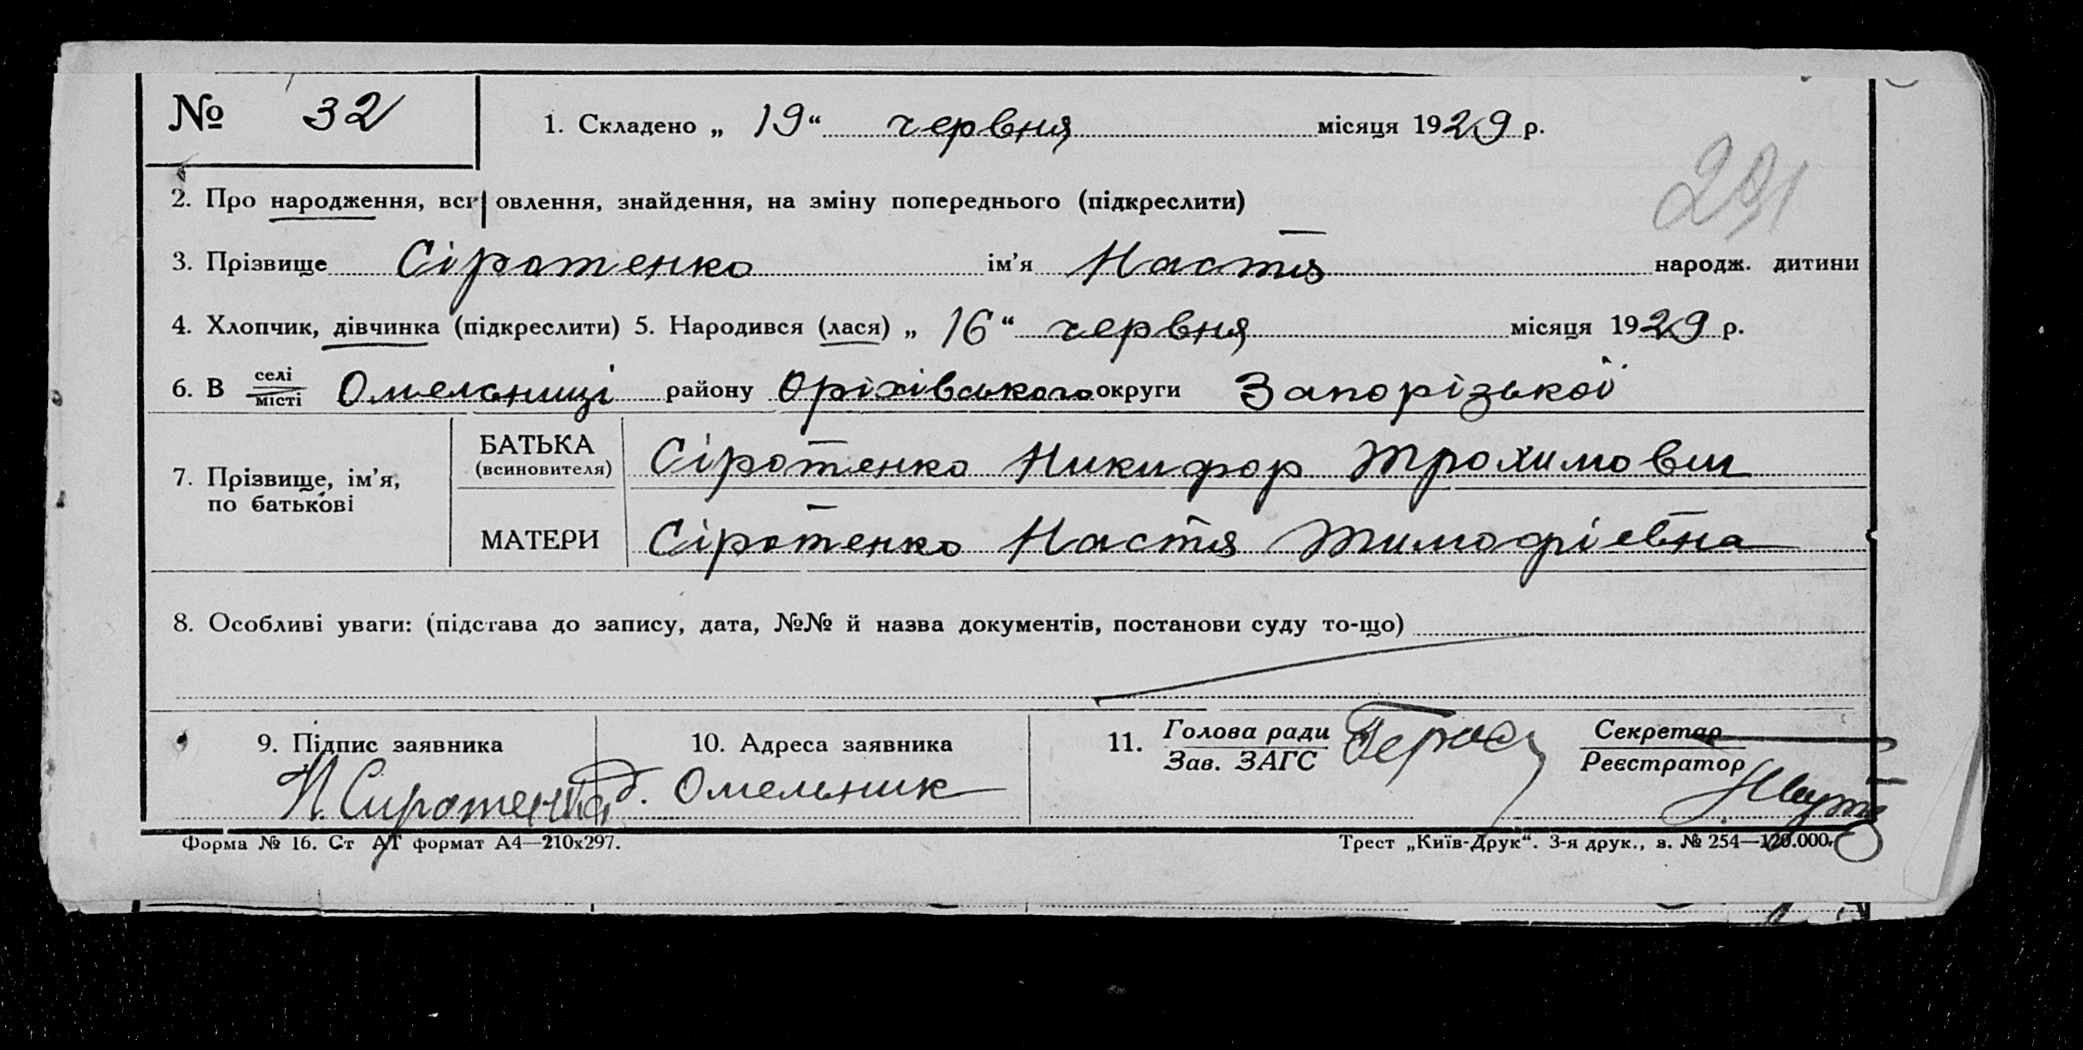 № 32 1. Складено „ 19 “ червня місяця 1929 р.
291
2. Про народження, вс овлення, знайдення, на зміну попереднього (підкреслити)
3. Прізвище Сіротенко ім’я Настя народж. дитини
4. Хлопчик, дівчинка (підкреслити) 5. Народився (лася) „ 16 “ червня місяця 1929 р.
6. В селі місті Омельниці району Оріхівського округи Запорізької
7. Прізвище, ім’я, по батькові
БАТЬКА (всиновителя) Сіротенко Никифор Трохимович
МАТЕРИ Сіротенко Настя Тимофієвна
8. Особливі уваги: (підстава до запису, дата, №№ й назва документів, постанови суду то-що)
9. Підпис заявника 10. Адреса заявника 11. Голова ради Секретар
Зав. ЗАГС Реєстратор
Н. Сиротенко с. Омельник
Форма № 16. Ст АТ формат А4—210х297. Трест „Київ-Друк“. 3-я друк., з. № 254—120.000.